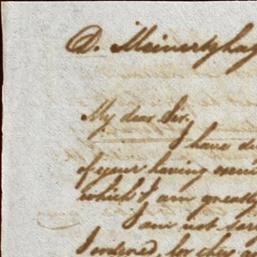 D. Meinertzhag
My dear Sir,
I have d
of your having
which I am greatly
I am not
I ordered, for this a